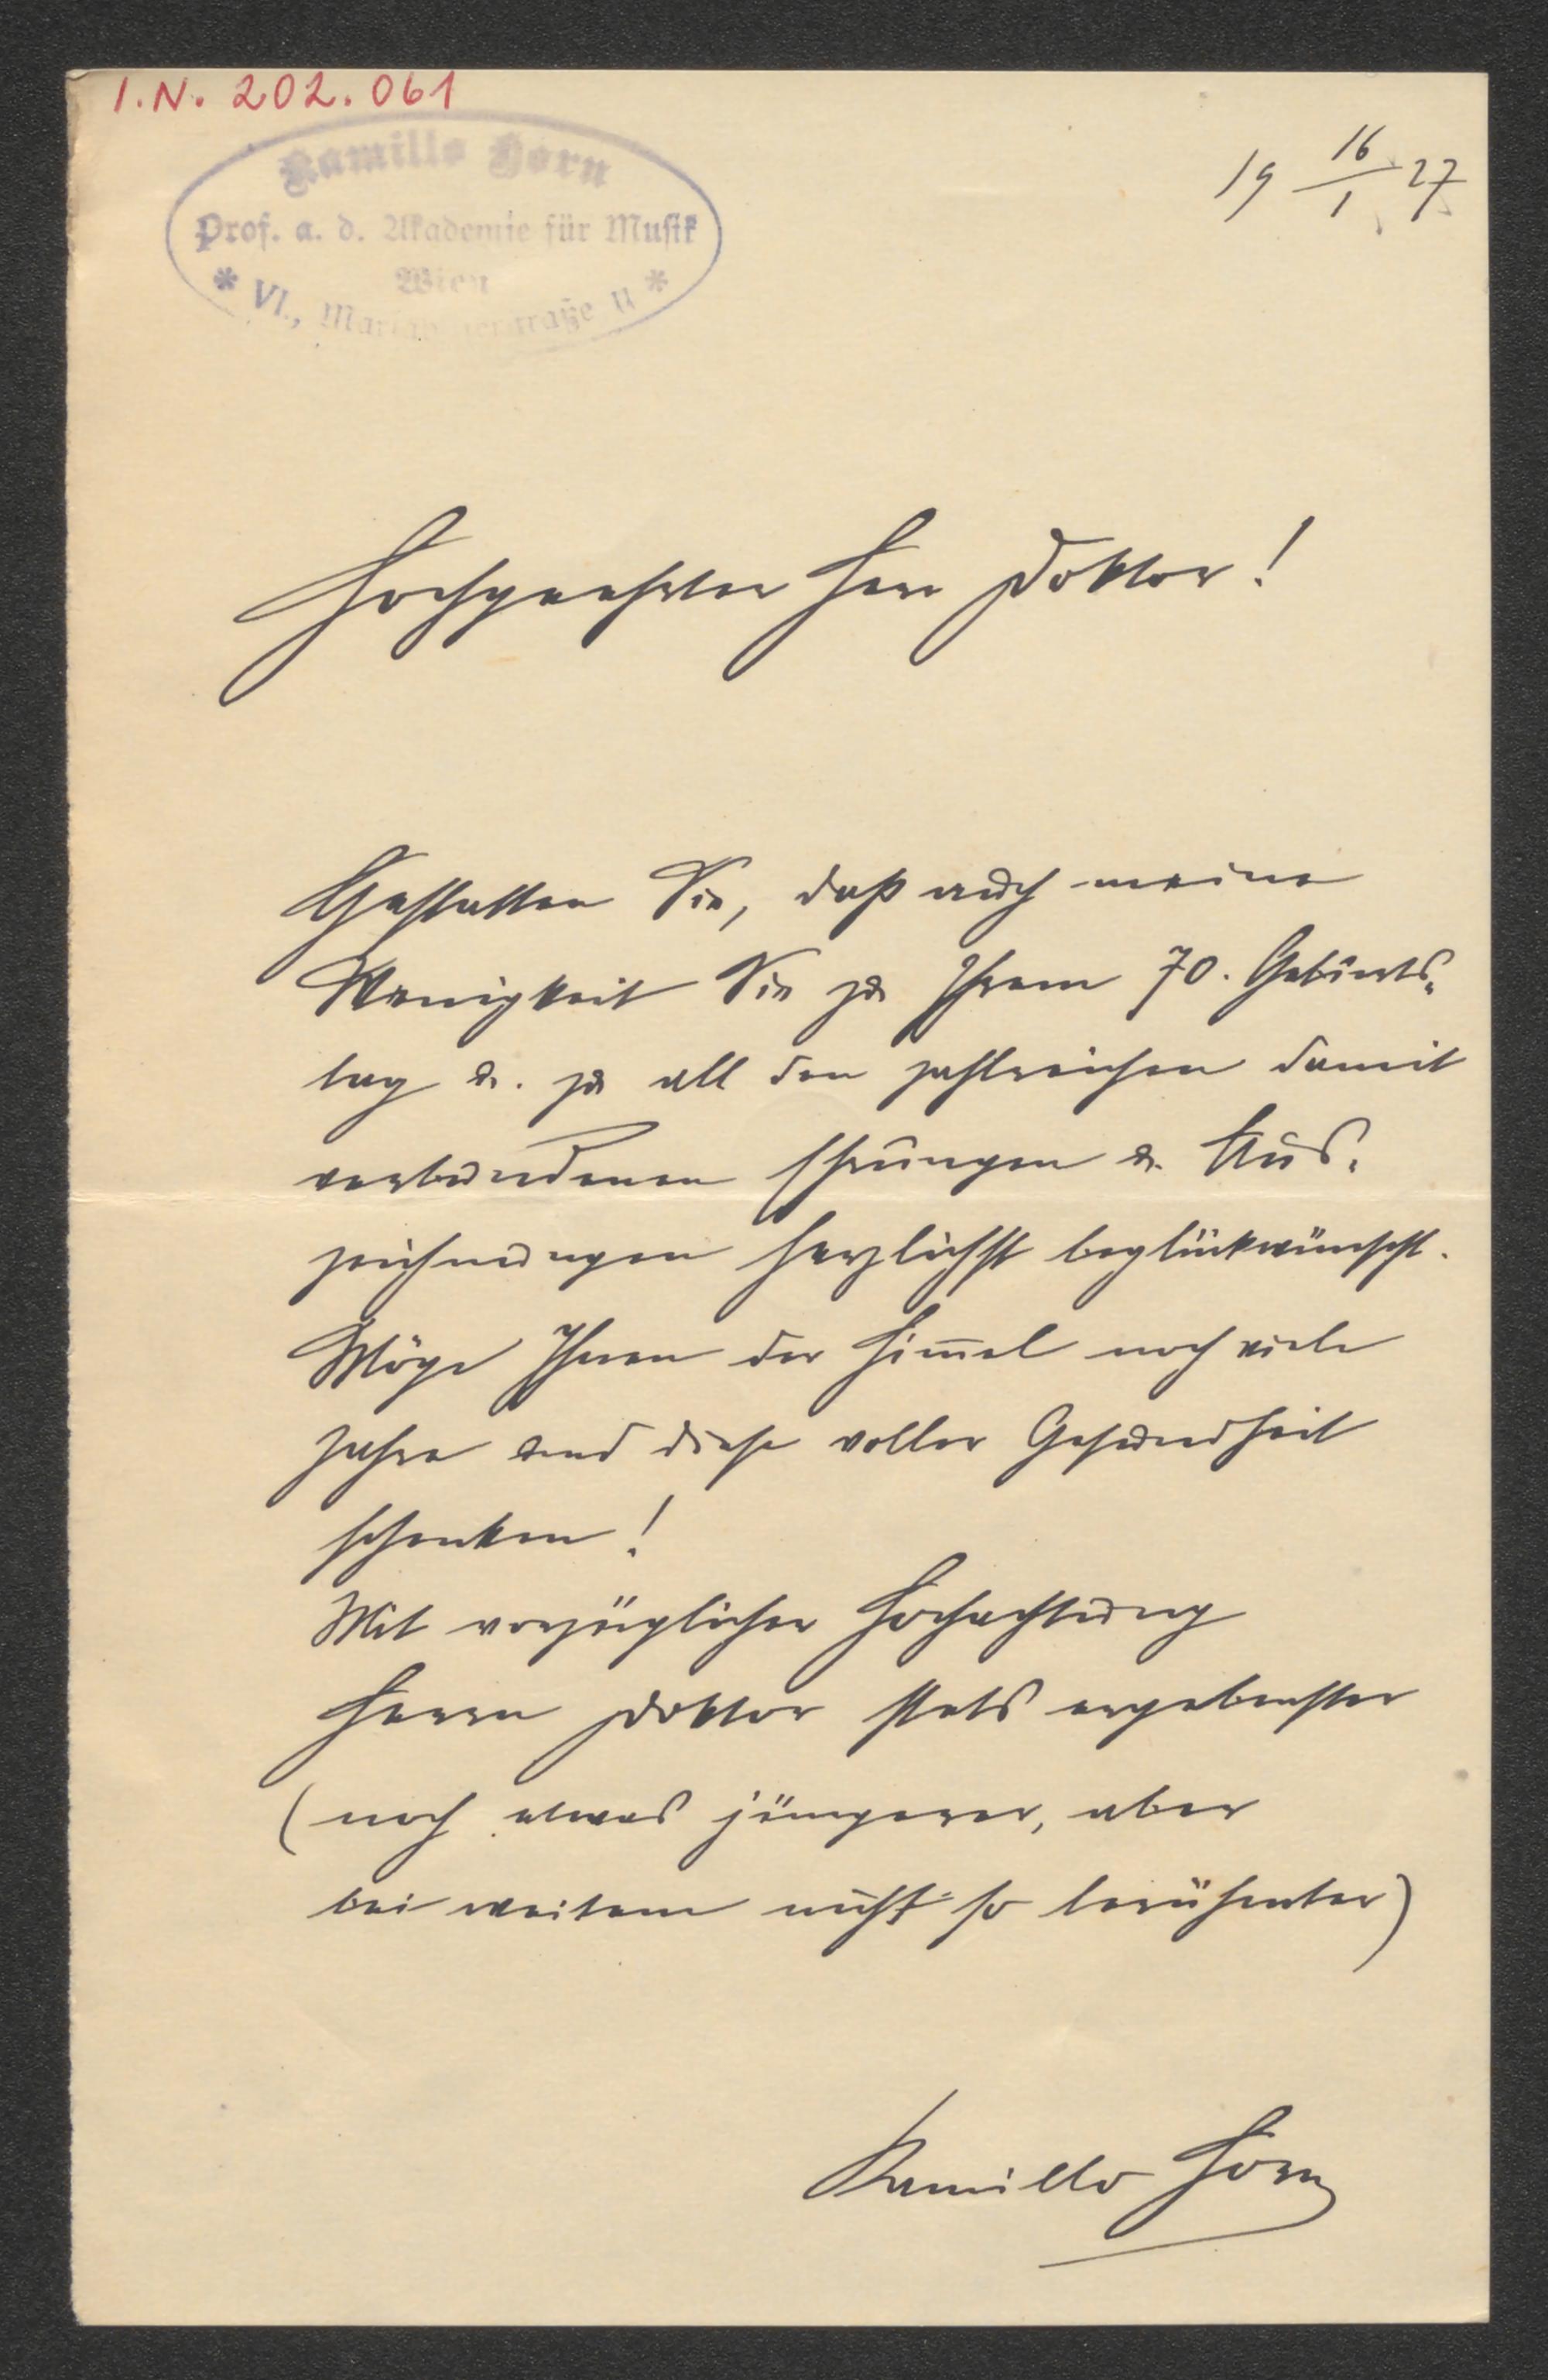 I.N. 202.061
Kamillo Horn
Prof. a. d. Akademie für Musik
Wien
* VI., *
19 16/1 27
Hochgeehrter Herr Doktor!
Gestatten Sie, daß auch meine
Wenigkeit Sie zu Ihrem 70. Geburts-
tag u. zu all den zahlreichen damit
verbundenen Ehrungen u. Aus-
zeichnungen herzlichst beglückwünscht.
Möge Ihnen der Him̅el noch viele
Jahre und diese voller Gesundheit
schenken!
Mit vorzüglicher Hochachtung
Herrn Doktor stets ergebenster
(noch etwas jüngerer, aber
bei weitem nicht so berühmter)
Kamillo Horn